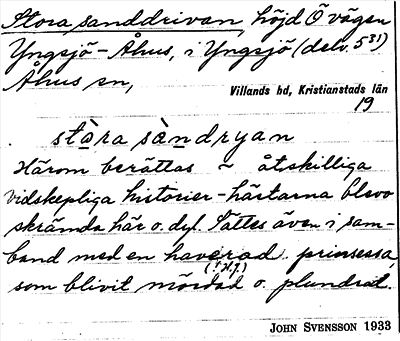 Stora sanddrivan, höjd Ö vägen
Yngsjö - Åhus, i Yngsjö (delv. 531)
Åhus sn,
Villands hd, Kristianstads län
19
stàra sàndryan
Härom berättas ~ åtskilliga
vidskepliga historier - hästarna blevo
skrämda här o. dyl. Sattes även i sam-
band med en haverad prinsessa,
(! H.J.)
som blivit mördad o. plundrad.
JOHN SVENSSON 1933